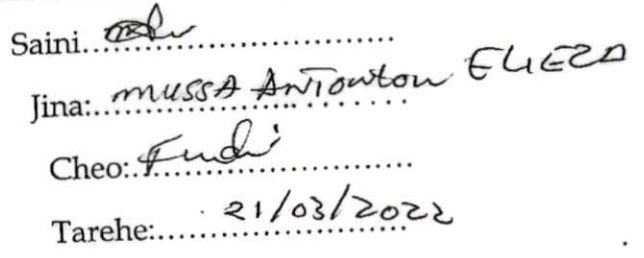 Saini..............................
Jina: MUSSA ANTONTON ELIEZA
Cheo: Fundi
Tarehe: 21/03/2022